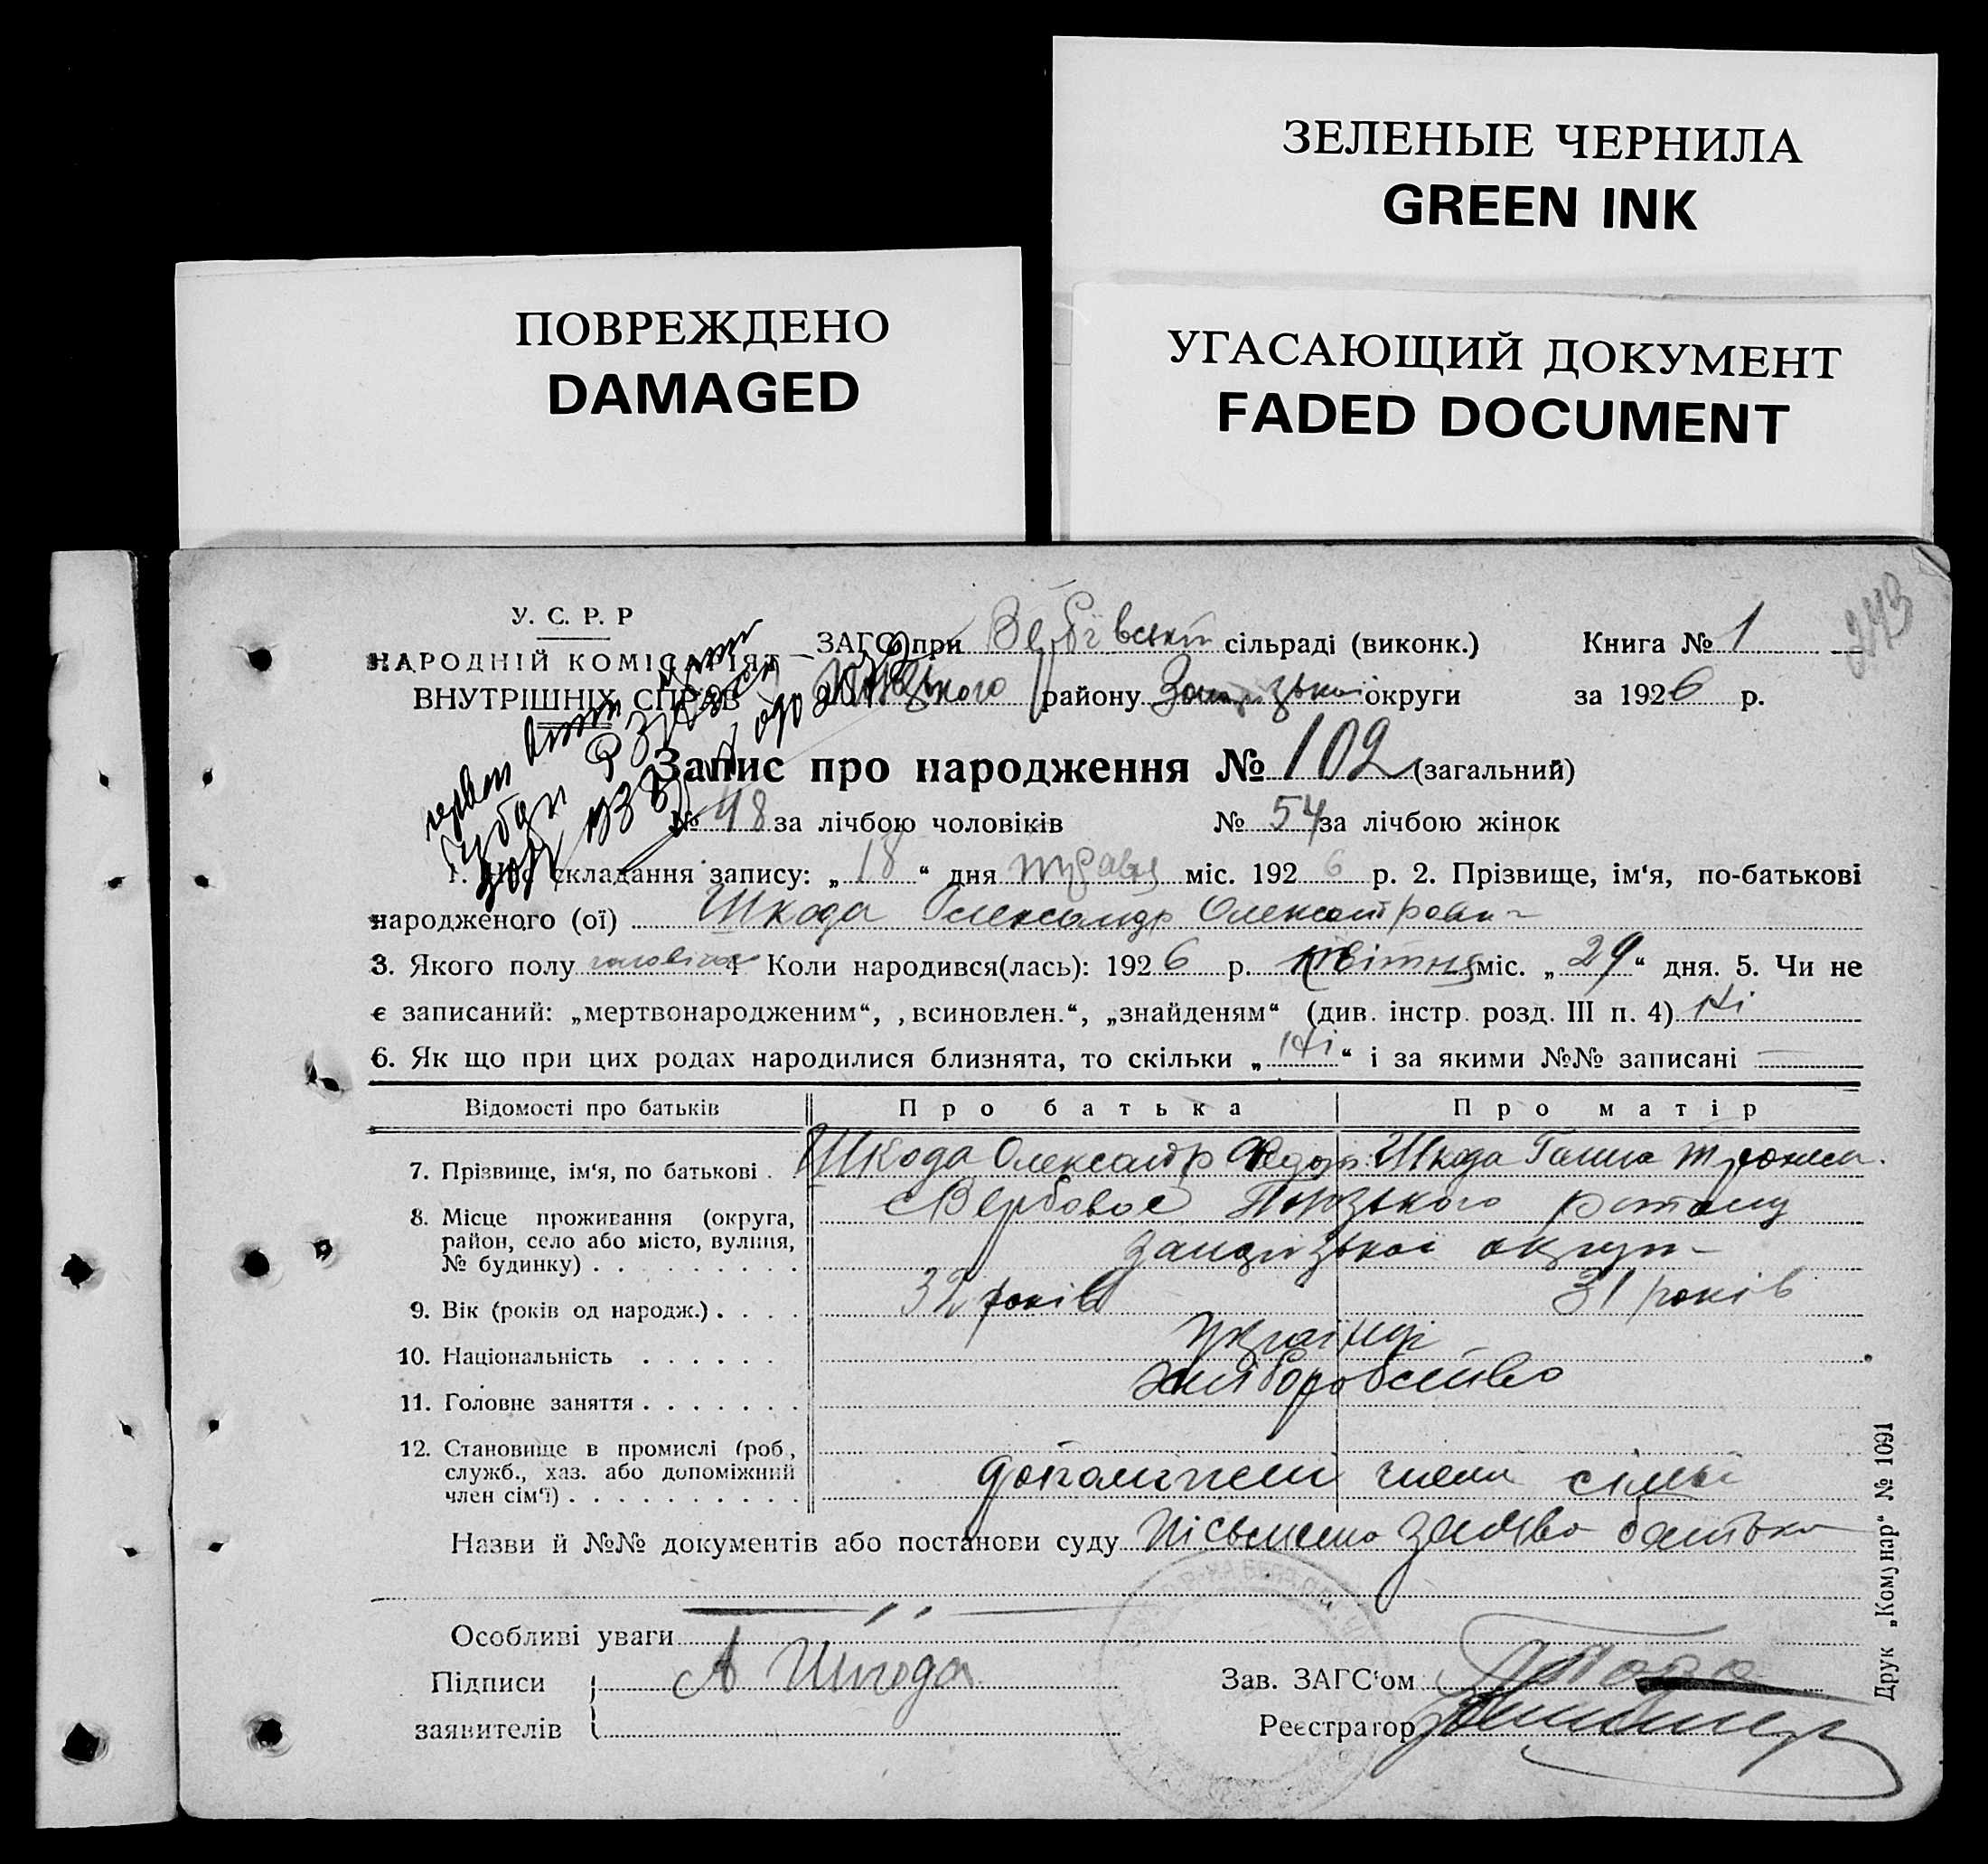 ЗЕЛЕНЫЕ ЧЕРНИЛА
GREEN INK
ПОВРЕЖДЕНО
DAMAGED
УГАСАЮЩИЙ ДОКУМЕНТ
FADED DOCUMENT
243
У. С. Р. Р
НАРОДНІЙ КОМІСАРІЯТ
ВНУТРІШНІХ СПРАВ
ЗАГС при сільраді (виконк.) Книга № 1
району округи за 1926 р.
Запис про народження № 102 (загальний)
№ 48 за лічбою чоловіків № 54 за лічбою жінок
1. складання запису: „ 18 “ дня травня міс. 1926 р. 2. Прізвище, ім‘я, по-батькові
народженого (ої) Шкода Олександр
3. Якого полу 4 Коли народився(лась): 1926 р. квітня міс. „ 29 “ дня. 5. Чи не
є записаний: „мертвонародженим“, „всиновлен.“, „знайденям“ (див. інстр. розд. III п. 4) Ні
6. Як що при цих родах народилися близнята, то скільки „ Ні “ і за якими №№ записані —
Відомості про батьків Про батька Про матір
7. Прізвище, ім‘я, по батькові . Шкода Олександр Федор. Шкода Ганна
8. Місце проживання (округа, район, село або місто, вулиця, № будинку) с Вербовое району
9. Вік (років од народж.) 32 років 31 років
10. Національність українці
11. Головне заняття хліборобство
12. Становище в промислі (роб., служб., хаз. або допоміжний член сім‘ї) члени сімьі
Назви й №№ документів або постанови суду заява батька
Особливі уваги
Підписи А Шкода Зав. ЗАГС‘ом
заявителів Реєстратор
Друк „Комунар“ № 1091